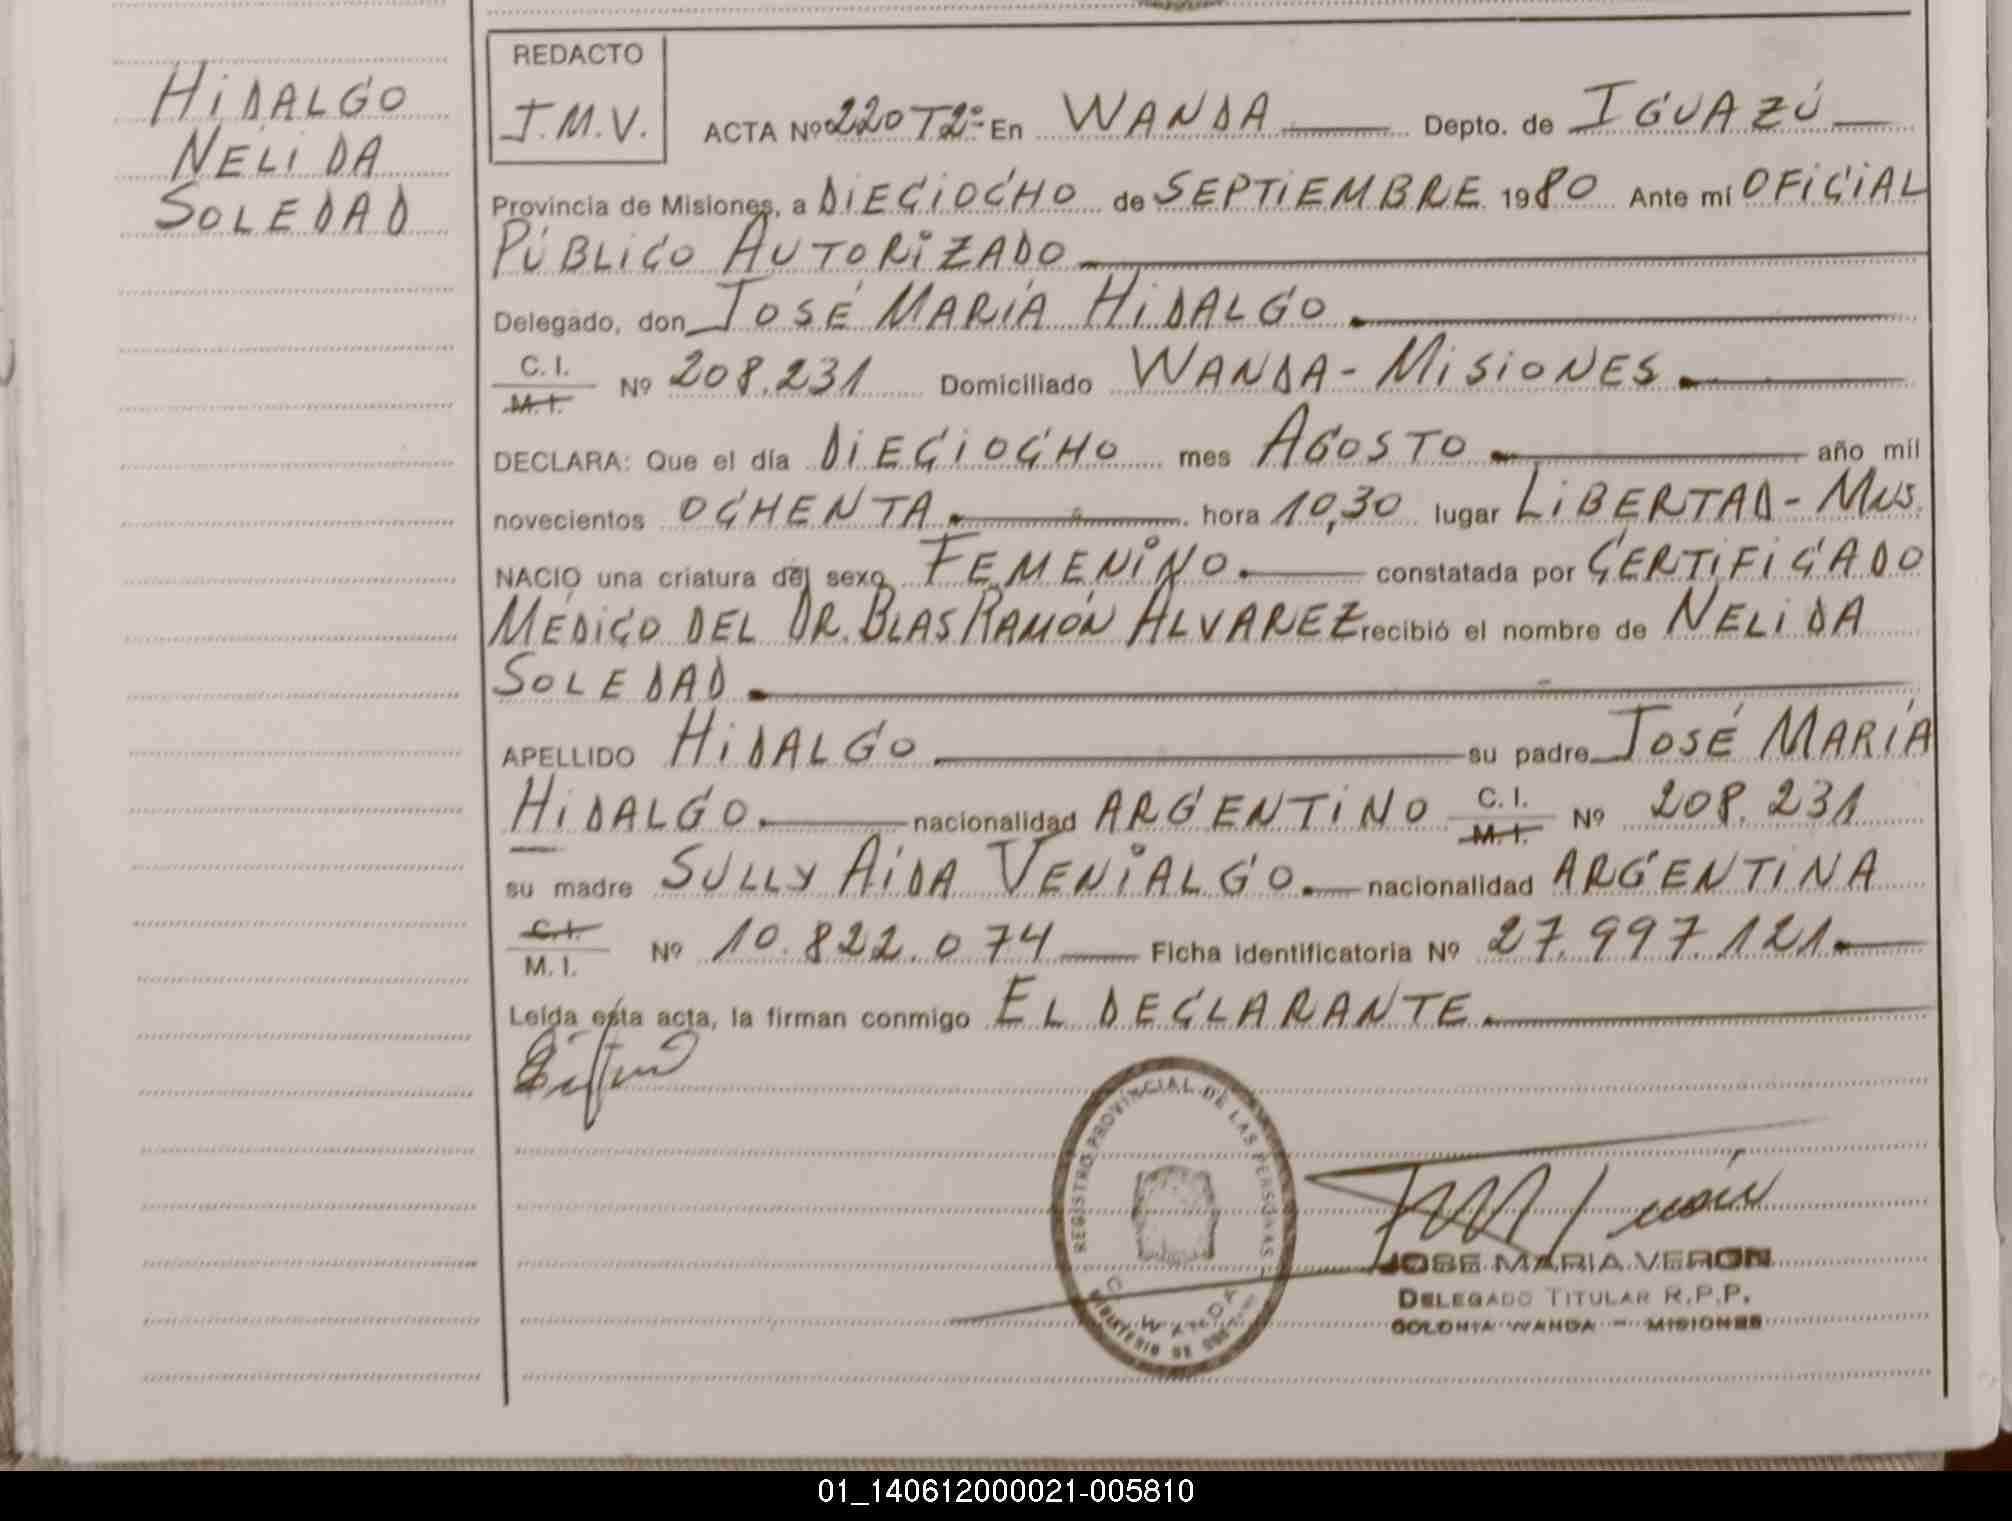 HIDALGO
NELIDA
SOLEDAD
REDACTO
J.M.V.
ACTA Nº 220 T2º En WANDA Depto. de IGUAZÚ
Provincia de Misiones, a DIECIOCHO de SEPTIEMBRE 1980 Ante mí OFICIAL
PÚBLICO AUTORIZADO
Delegado, don JOSÉ MARÍA HIDALGO
C. I.
M. I. Nº 208.231 Domiciliado WANDA - MISIONES
DECLARA: Que el día DIECIOCHO mes AGOSTO año mil
novecientos OCHENTA hora 10,30 lugar LIBERTAD - Mns.
NACIO una criatura del sexo FEMENINO constatada por CERTIFICADO
MÉDICO DEL DR. BLAS RAMÓN ALVAREZ recibió el nombre de NELIDA
SOLEDAD
APELLIDO HIDALGO su padre JOSÉ MARÍA
HIDALGO nacionalidad ARGENTINO C. I. M. I. Nº 208.231
su madre SULLY AIDA VENIALGO nacionalidad ARGENTINA
C. I.
M. I. Nº 10.822.074 Ficha identificatoria Nº 27.997.121
Leída esta acta, la firman conmigo EL DECLARANTE.
REGISTRO PROVINCIAL DE LAS PERSONAS
WANDA
MINISTERIO DE
JOSE MARIA VERON
DELEGADO TITULAR R.P.P.
COLONIA WANDA - MISIONES
01_140612000021-005810